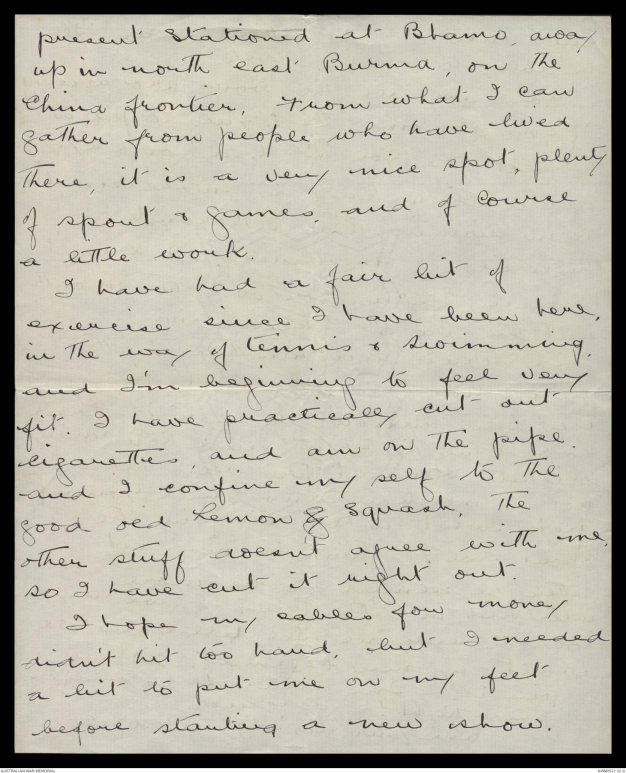 present stationed at Bhamo, away
up in north east Burma, on the
China frontier. From what I can
gather from people who have lived
there, it is a very nice spot, plenty
of sport & games, and of course
a little work.
I have had a fair bit of
exercise since I have been here,
in the way of tennis & swimming,
and I'm beginning to feel very
fit. I have practically cut out
cigarettes, and am on the pipe.
and I confine my self to the
good old Lemon & Squash. The
other stuff doesn't agree with me,
so I have cut it right out.
I hope my cables for money
didn't hit too hard, but I needed
a bit to put me on my feet
before starting a new show.
AUSTRALIAN WAR MEMORIAL